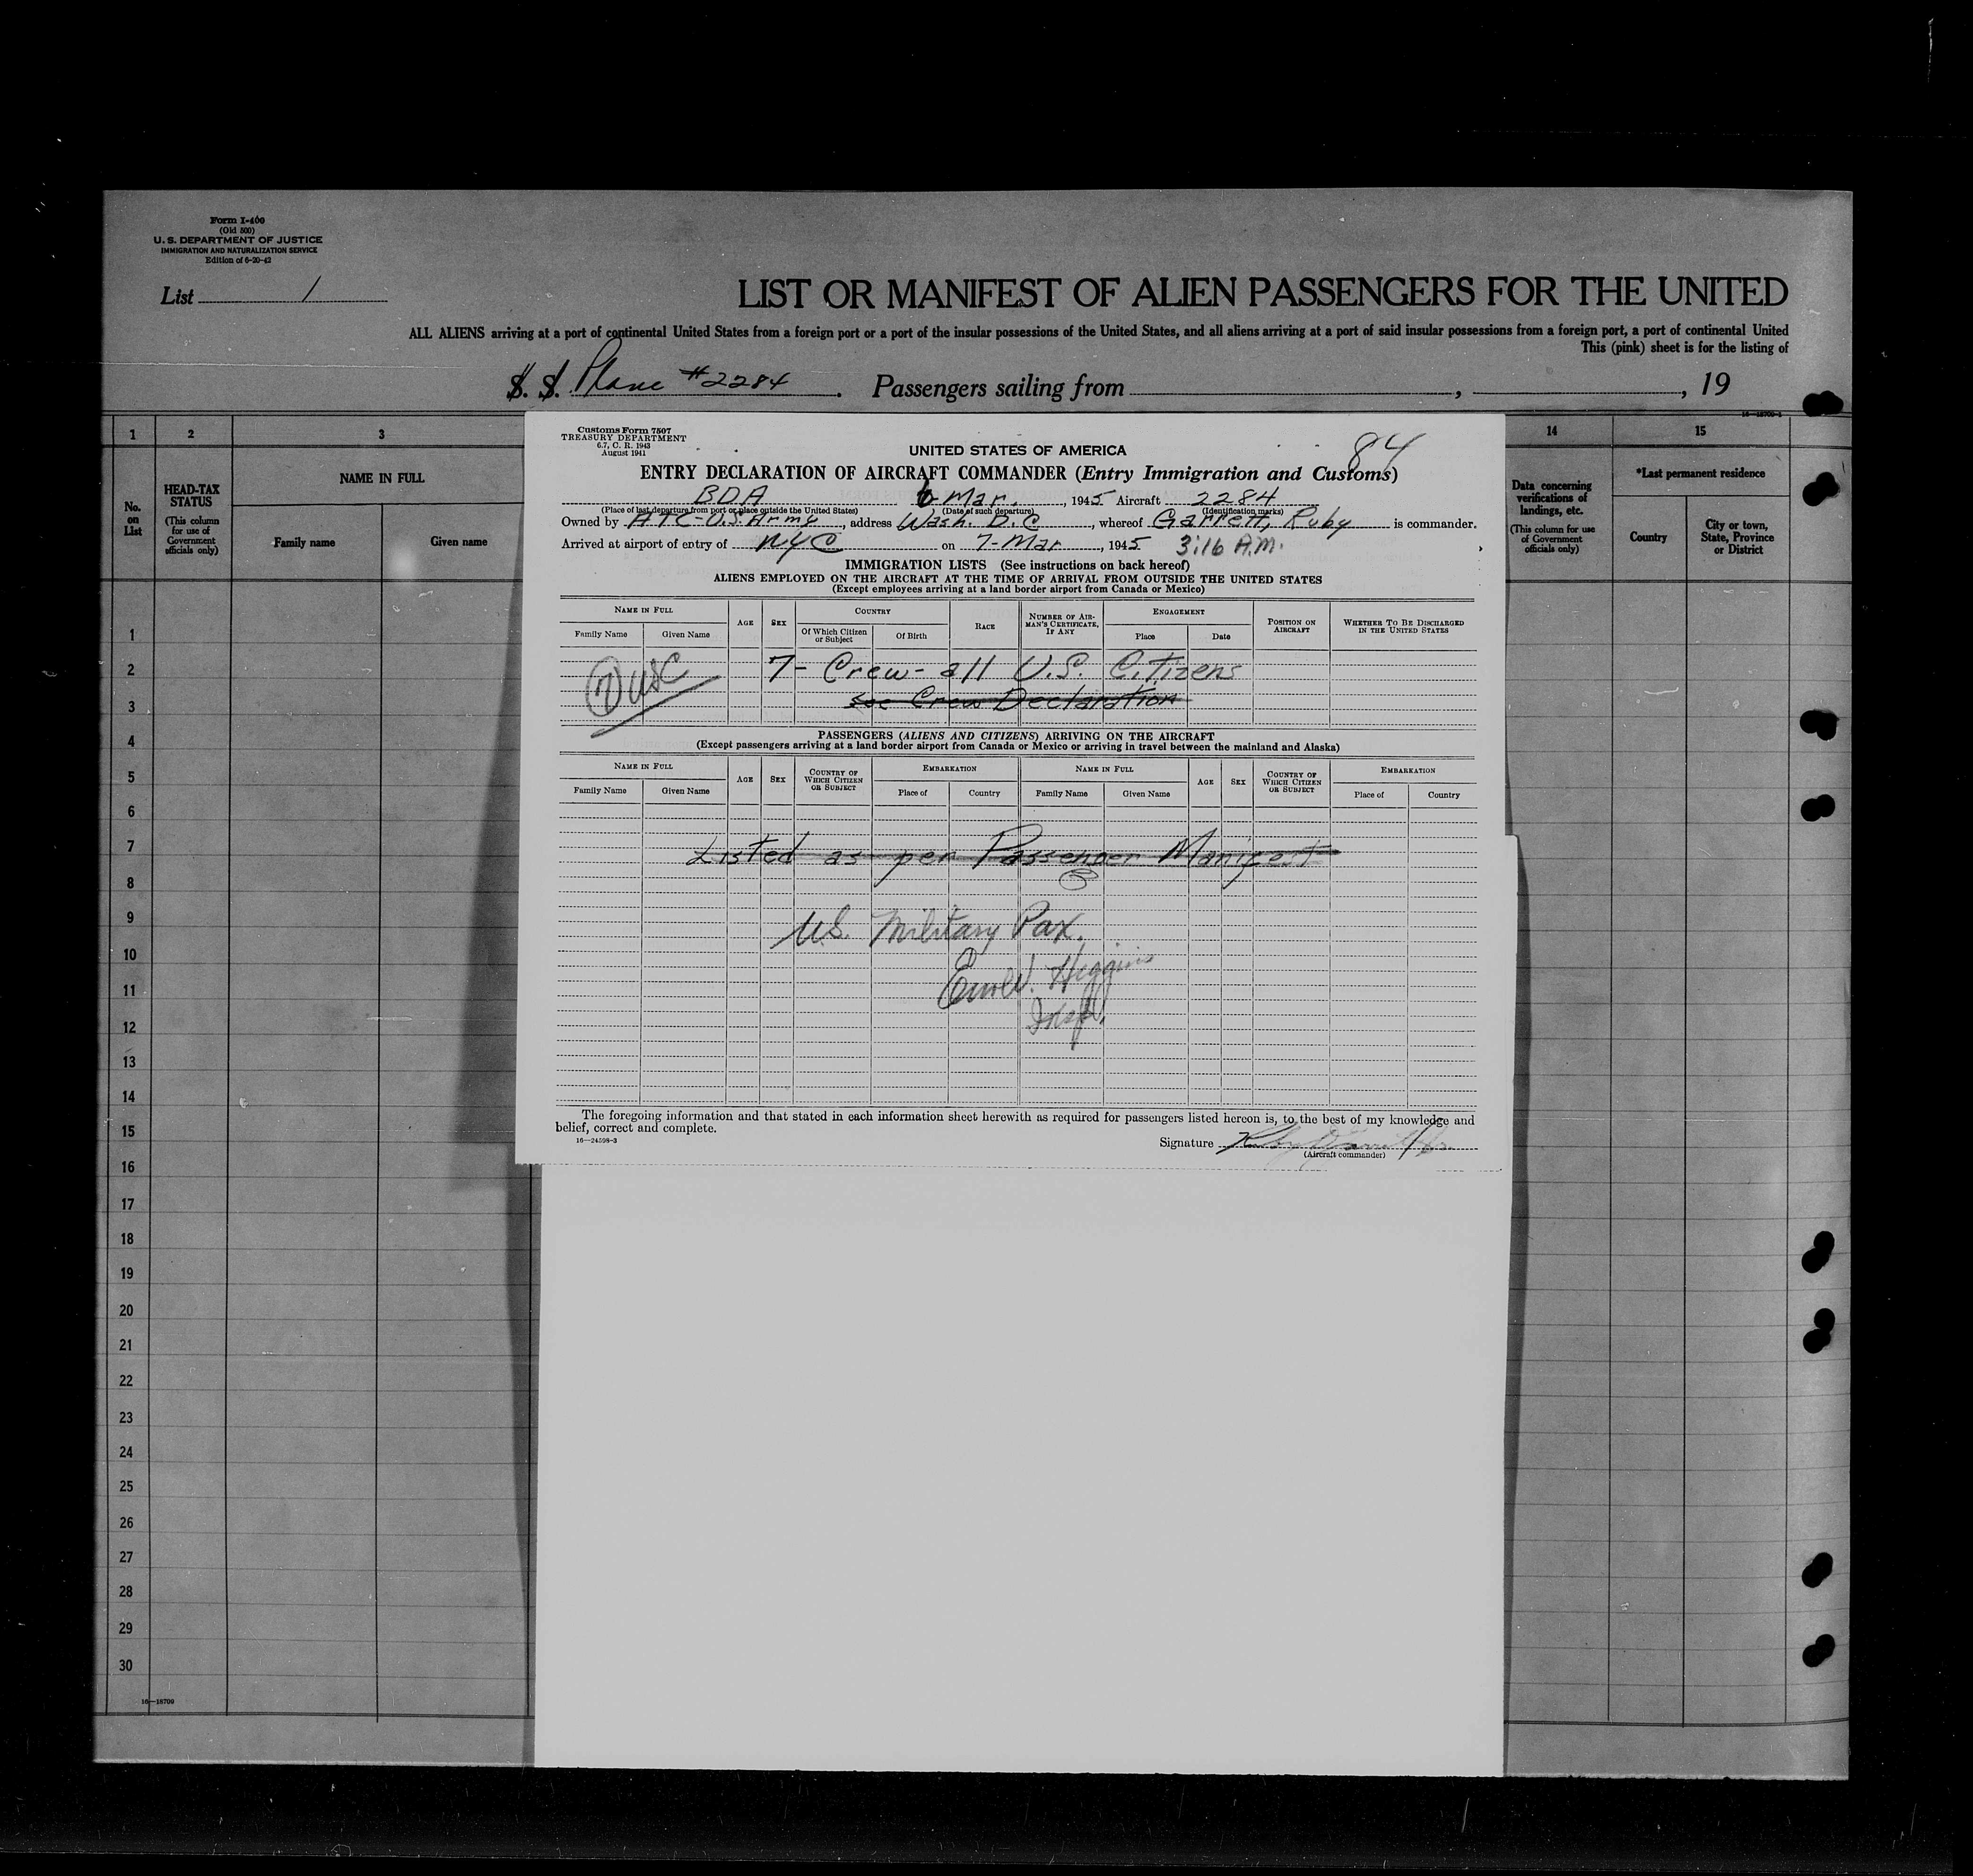 Form I-400
(Old 500)
U. S. DEPARTMENT OF JUSTICE
IMMIGRATION AND NATURALIZATION SERVICE
Edition of 6-20-42
List 1
LIST OR MANIFEST OF ALIEN PASSENGERS FOR THE UNITED
ALL ALIENS arriving at a port of continental United States from a foreign port or a port of the insular possessions of the United States, and all aliens arriving at a port of said insular possessions from a foreign port, a port of continental United
This (pink) sheet is for the listing of
S. S. Plane #2284. Passengers sailing from , , 19
1 2 3
No. on List
HEAD-TAX STATUS
(This column for use of Government officials only)
NAME IN FULL
Family name Given name
14 15
Data concerning verifications of landings, etc.
(This column for use of Government officials only)
*Last permanent residence
Country
City or town, State, Province or District
1
2
3
4
5
6
7
8
9
10
11
12
13
14
15
16
17
18
19
20
21
22
23
24
25
26
27
28
29
30
16—18709
Customs Form 7507
TREASURY DEPARTMENT
6.7, C. R. 1943
August 1941
84
UNITED STATES OF AMERICA
ENTRY DECLARATION OF AIRCRAFT COMMANDER (Entry Immigration and Customs)
BDA 6 Mar., 1945 Aircraft 2284
(Place of last departure from port or place outside the United States) (Date of such departure) (Identification marks)
Owned by ATC-U.S. Army, address Wash. D.C, whereof Garrett, Ruby is commander.
Arrived at airport of entry of NYC on 7-Mar, 1945 3:16 A.M.
IMMIGRATION LISTS (See instructions on back hereof)
ALIENS EMPLOYED ON THE AIRCRAFT AT THE TIME OF ARRIVAL FROM OUTSIDE THE UNITED STATES
(Except employees arriving at a land border airport from Canada or Mexico)
NAME IN FULL AGE SEX COUNTRY RACE NUMBER OF AIRMAN'S CERTIFICATE, IF ANY ENGAGEMENT POSITION ON AIRCRAFT WHETHER TO BE DISCHARGED IN THE UNITED STATES
Family Name Given Name Of Which Citizen or Subject Of Birth Place Date
7 USC
7- Crew- all U.S. Citizens
see Crew Declaration
PASSENGERS (ALIENS AND CITIZENS) ARRIVING ON THE AIRCRAFT
(Except passengers arriving at a land border airport from Canada or Mexico or arriving in travel between the mainland and Alaska)
NAME IN FULL AGE SEX COUNTRY OF WHICH CITIZEN OR SUBJECT EMBARKATION NAME IN FULL AGE SEX COUNTRY OF WHICH CITIZEN OR SUBJECT EMBARKATION
Family Name Given Name Place of Country Family Name Given Name Place of Country
Listed as per Passenger Manifest
U.S. Military Pax.
W. Higgins
Insp.
The foregoing information and that stated in each information sheet herewith as required for passengers listed hereon is, to the best of my knowledge and
belief, correct and complete.
16—24598-3
Signature
(Aircraft commander)